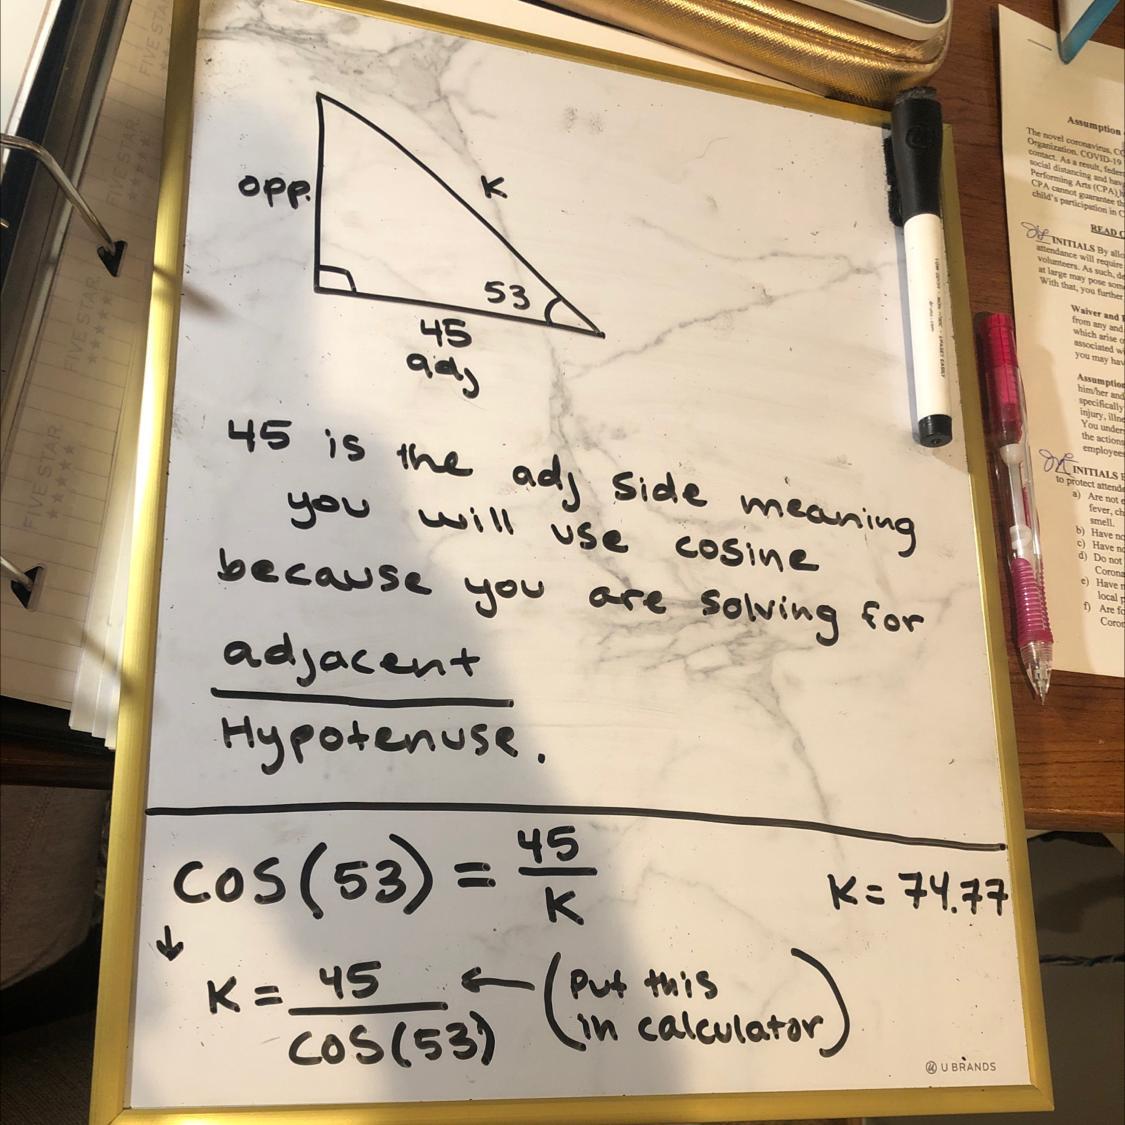 opp.
K
53
45
adj
45 is the adj side meaning
you will use cosine
because you are solving for
adjacent
Hypotenuse.
cos(53) = 45
K
K = 74.77
K = 45
cos(53)
(Put this
in calculator)
U BRANDS
FIVE STAR
FIVE STAR
FIVE STAR
FIVE STAR
Assumption
The novel coronavirus,
Organization. COVID-19
contact. As a result,
social distancing and
Performing Arts (CPA)
CPA cannot guarantee
child's participation in
READ
INITIALS By
attendance will require
volunteers. As such,
at large may pose
With that, you further
Waiver and
from any and
which arise
associated
you may
Assumption
him/her and
specifically
injury,
You
the actions
INITIALS
to protect
a) Are not
fever,
smell.
b) Have
c) Have
d) Do not
e) Have
local
f) Are